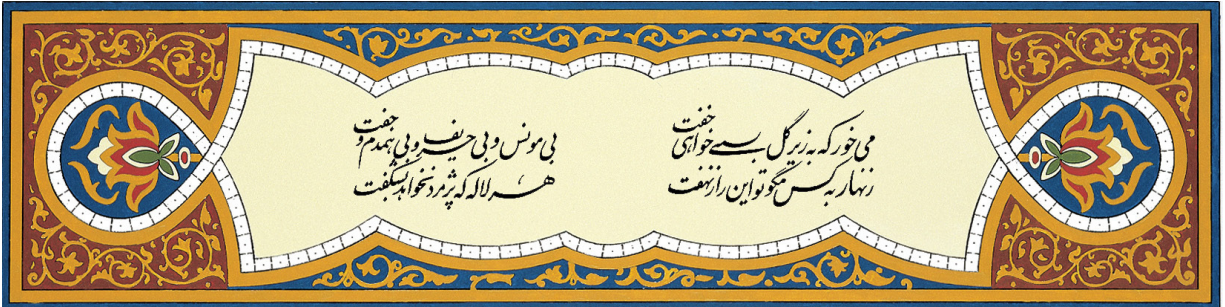 می خور که به زیر گل بسی خواهی خفت
بی مونس و بی حریف و بی همدم و جفت
زنهار به کس مگو تو این راز نهفت
هر لاله که پژمرد نخواهد بشکفت